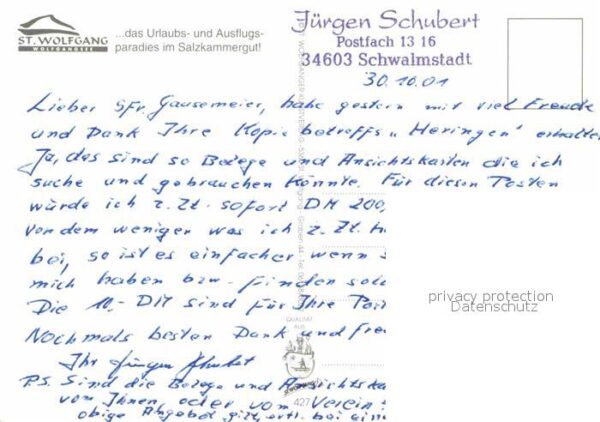 ST. WOLFGANG
WOLFGANGSEE
...das Urlaubs- und Ausflugs-
paradies im Salzkammergut!
Jürgen Schubert
Postfach 13 16
34603 Schwalmstadt
30.10.01
Lieber Sfr. Gausemeier, habe gestern mit viel Freude
und Dank Ihre Kopie betreffs "Heringen" erhalte
Ja, das sind so Belege und Ansichtskarten die ich
suche und gebrauchen könnte. Für diesen Posten
würde ich z. Zt. sofort DM 200,
von dem weniger was ich z. Zt. h
bei, so ist es einfacher wenn s
mich haben bzw. finden soll
Die 10,- DM sind für Ihre Port
Nochmals besten Dank und fre
Ihr Jürgen Schubert
P.S. Sind die Belege und Ansichtska
von Ihnen, oder vom Verein
obige Angebot gilt
QUALITÄT
AUS
427
privacy protection
Datenschutz